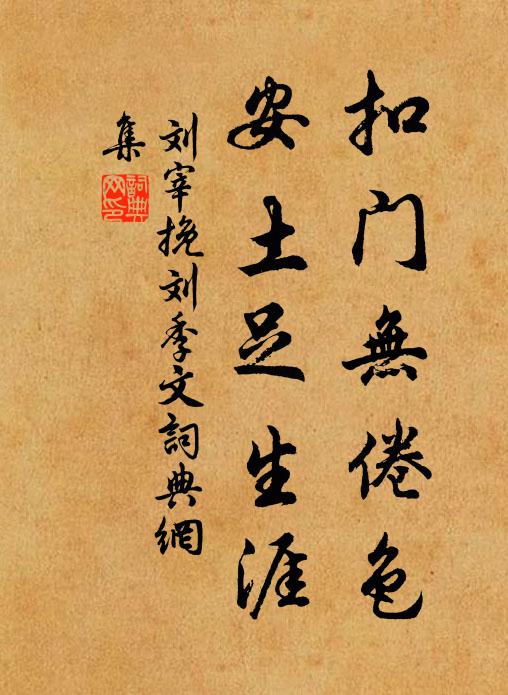 扣门無倦色
安土足生涯
刘宰挽刘季文詞典網
集
詞典网印